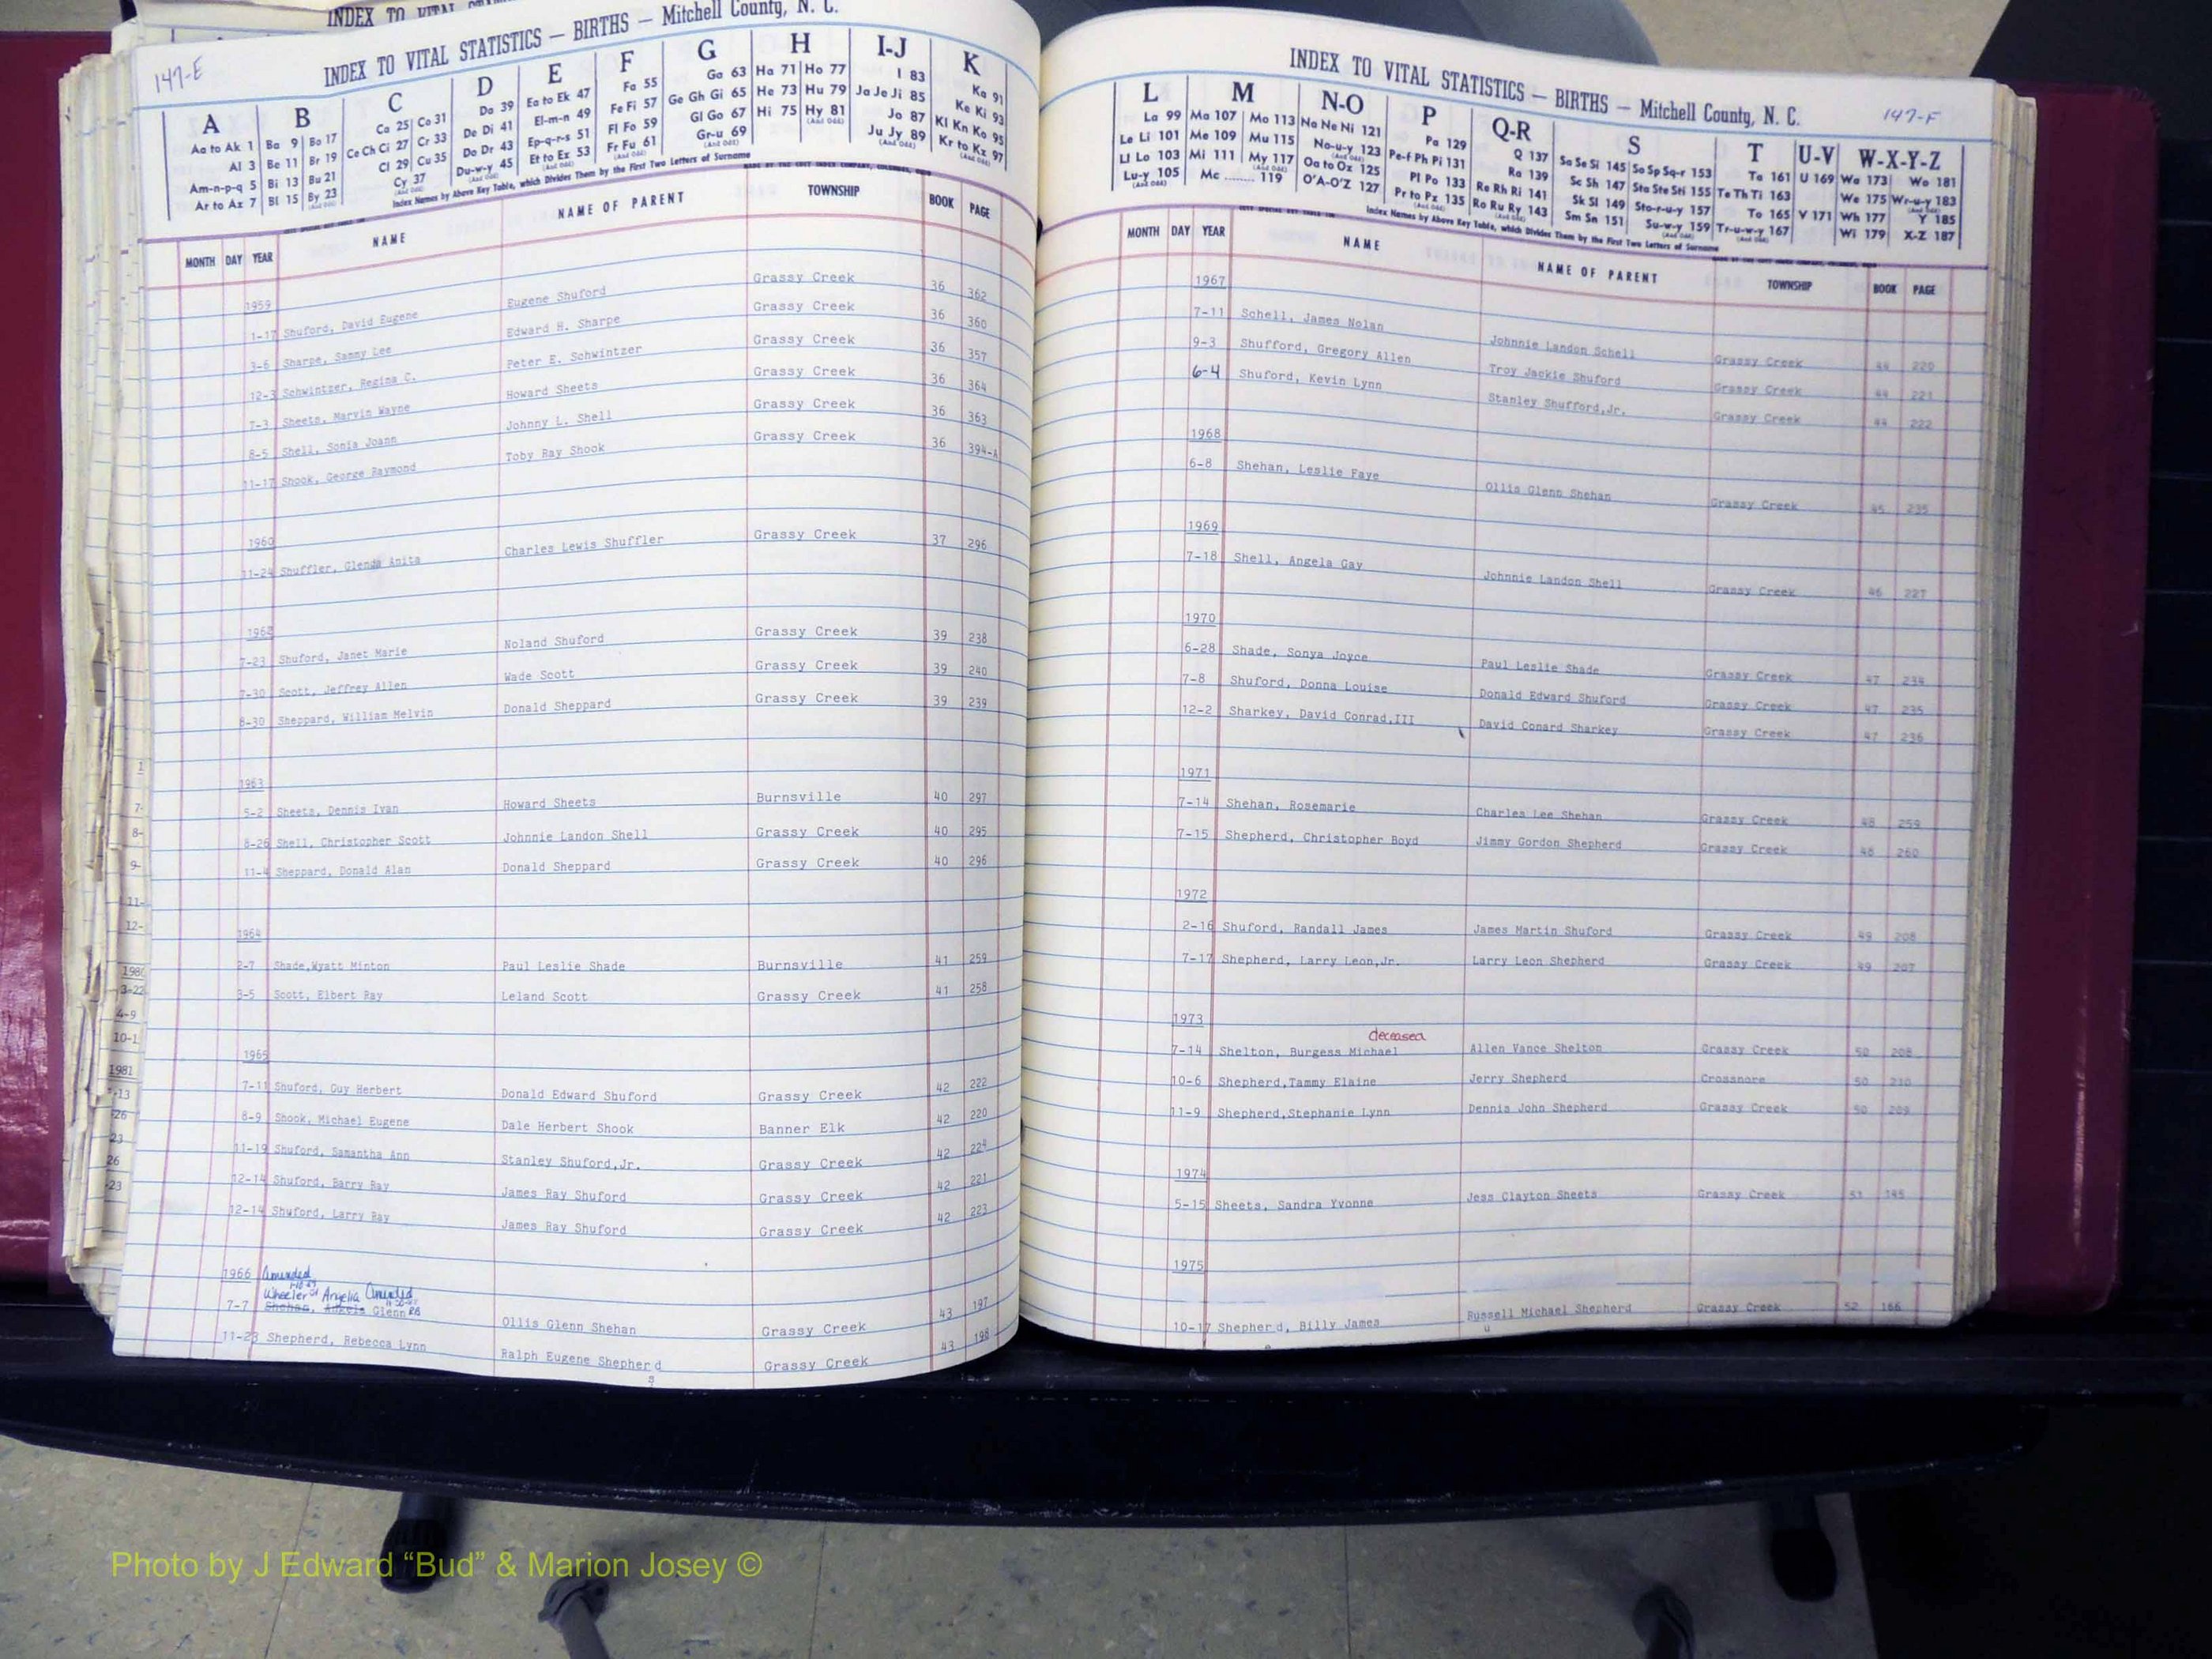 INDEX TO VITAL
147-E
INDEX TO VITAL STATISTICS — BIRTHS — Mitchell County, N. C.
A B C D E F G H I-J K
Aa to Ak 1 Ba 9 Bo 17 Ca 25 Co 31 Da 39 Ea to Ek 47 Fa 55 Ga 63 Ha 71 Ho 77 I 83 Ka 91
Al 3 Be 11 Br 19 Ce Ch Ci 27 Cr 33 De Di 41 El-m-n 49 Fe Fi 57 Ge Gh Gi 65 He 73 Hu 79 Ja Je Ji 85 Ke Ki 93
Am-n-p-q 5 Bi 13 Bu 21 Cl 29 Cu 35 Do Dr 43 Ep-q-r-s 51 Fl Fo 59 Gl Go 67 Hi 75 Hy 81 Jo 87 Kl Kn Ko 95
Ar to Az 7 Bl 15 By 23 Cy 37 Du-w-y 45 Et to Ez 53 Fr Fu 61 Gr-u 69 Ju Jy 89 Kr to Kz 97
Index Names by Above Key Table, which Divides Them by the First Two Letters of Surname
MONTH DAY YEAR NAME NAME OF PARENT TOWNSHIP BOOK PAGE
1959
1-17 Shuford, David Eugene Eugene Shuford Grassy Creek 36 362
3-6 Sharpe, Sammy Lee Edward H. Sharpe Grassy Creek 36 360
12-3 Schwintzer, Regina C. Peter E. Schwintzer Grassy Creek 36 357
7-3 Sheets, Marvin Wayne Howard Sheets Grassy Creek 36 364
8-5 Shell, Sonia Joann Johnny L. Shell Grassy Creek 36 363
11-17 Shook, George Raymond Toby Ray Shook Grassy Creek 36 394-A
1960
11-24 Shuffler, Glenda Anita Charles Lewis Shuffler Grassy Creek 37 296
1962
7-23 Shuford, Janet Marie Noland Shuford Grassy Creek 39 238
7-30 Scott, Jeffrey Allen Wade Scott Grassy Creek 39 240
8-30 Sheppard, William Melvin Donald Sheppard Grassy Creek 39 239
1963
5-2 Sheets, Dennis Ivan Howard Sheets Burnsville 40 297
8-26 Shell, Christopher Scott Johnnie Landon Shell Grassy Creek 40 295
11-4 Sheppard, Donald Alan Donald Sheppard Grassy Creek 40 296
1964
2-7 Shade,Wyatt Minton Paul Leslie Shade Burnsville 41 259
3-5 Scott, Elbert Ray Leland Scott Grassy Creek 41 258
1965
7-11 Shuford, Guy Herbert Donald Edward Shuford Grassy Creek 42 222
8-9 Shook, Michael Eugene Dale Herbert Shook Banner Elk 42 220
11-19 Shuford, Samantha Ann Stanley Shuford,Jr. Grassy Creek 42 224
12-14 Shuford, Barry Ray James Ray Shuford Grassy Creek 42 221
12-14 Shuford, Larry Ray James Ray Shuford Grassy Creek 42 223
1966 Amended
Wheeler Angelia Amended
7-7 Shehan, Angela Glenn Ollis Glenn Shehan Grassy Creek 43 197
11-23 Shepherd, Rebecca Lynn Ralph Eugene Shepherd Grassy Creek 43 198
INDEX TO VITAL STATISTICS — BIRTHS — Mitchell County, N. C.
147-F
L M N-O P Q-R S T U-V W-X-Y-Z
La 99 Ma 107 Mo 113 Na Ne Ni 121 Pa 129 Q 137 Sa Se Si 145 So Sp Sq-r 153 Ta 161 U 169 Wa 173 Wo 181
Le Li 101 Me 109 Mu 115 No-u-y 123 Pe-f Ph Pi 131 Ra 139 Sc Sh 147 Sta Ste Sti 155 Te Th Ti 163 We 175 Wr-u-y 183
Ll Lo 103 Mi 111 My 117 Oa to Oz 125 Pl Po 133 Re Rh Ri 141 Sk Sl 149 Sto-r-u-y 157 To 165 V 171 Wh 177 Y 185
Lu-y 105 Mc 119 O'A-O'Z 127 Pr to Pz 135 Ro Ru Ry 143 Sm Sn 151 Su-w-y 159 Tr-u-w-y 167 Wi 179 X-Z 187
Index Names by Above Key Table, which Divides Them by the First Two Letters of Surname
MONTH DAY YEAR NAME NAME OF PARENT TOWNSHIP BOOK PAGE
1967
7-11 Schell, James Nolan Johnnie Landon Schell Grassy Creek 44 220
9-3 Shufford, Gregory Allen Troy Jackie Shuford Grassy Creek 44 221
6-4 Shuford, Kevin Lynn Stanley Shufford,Jr. Grassy Creek 44 222
1968
6-8 Shehan, Leslie Faye Ollis Glenn Shehan Grassy Creek 45 235
1969
7-18 Shell, Angela Gay Johnnie Landon Shell Grassy Creek 46 227
1970
6-28 Shade, Sonya Joyce Paul Leslie Shade Grassy Creek 47 234
7-8 Shuford, Donna Louise Donald Edward Shuford Grassy Creek 47 235
12-2 Sharkey, David Conrad,III David Conard Sharkey Grassy Creek 47 236
1971
7-14 Shehan, Rosemarie Charles Lee Shehan Grassy Creek 48 259
7-15 Shepherd, Christopher Boyd Jimmy Gordon Shepherd Grassy Creek 48 260
1972
2-16 Shuford, Randall James James Martin Shuford Grassy Creek 49 208
7-17 Shepherd, Larry Leon,Jr. Larry Leon Shepherd Grassy Creek 49 207
1973
deceased
7-14 Shelton, Burgess Michael Allen Vance Shelton Grassy Creek 50 208
10-6 Shepherd,Tammy Elaine Jerry Shepherd Crossnore 50 210
11-9 Shepherd,Stephanie Lynn Dennis John Shepherd Grassy Creek 50 209
1974
5-15 Sheets, Sandra Yvonne Jess Clayton Sheets Grassy Creek 51 145
1975
10-17 Shepherd, Billy James Russell Michael Shepherd Grassy Creek 52 166
Photo by J Edward “Bud” & Marion Josey ©